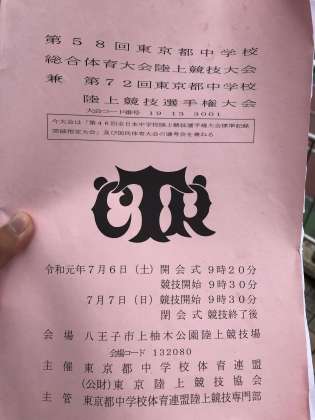 第58回東京都中学校
総合体育大会陸上競技大会
兼 第72回東京都中学校
陸上競技選手権大会
大会コード番号 19 13 3001
今大会は「第46回全日本中学校陸上競技選手権大会標準記録
突破指定大会」及び国民体育大会の選考会を兼ねる
CTR
令和元年7月6日(土)開会式 9時20分
競技開始 9時30分
7月7日(日)競技開始 9時30分
閉会式 競技終了後
会場 八王子市上柚木公園陸上競技場
会場コード 132080
主催 東京都中学校体育連盟
(公財)東京陸上競技協会
主管 東京都中学校体育連盟陸上競技専門部